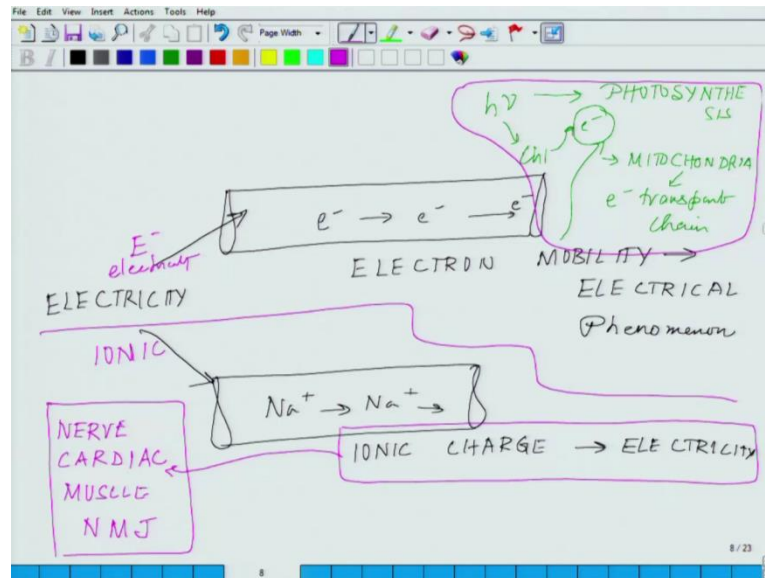 File Edit View Insert Actions Tools Help
Page Width
B I
hν → PHOTOSYNTHE
SIS
Chl e⁻
→ MITOCHONDRIA
e⁻ transport
chain
e⁻ → e⁻ → e⁻
E⁻
ELECTRON MOBILITY →
ELECTRICITY
ELECTRICAL
Phenomenon
IONIC
Na⁺ → Na⁺ →
NERVE
CARDIAC
MUSCLE
NMJ
IONIC CHARGE → ELECTRICITY
8 / 23
8